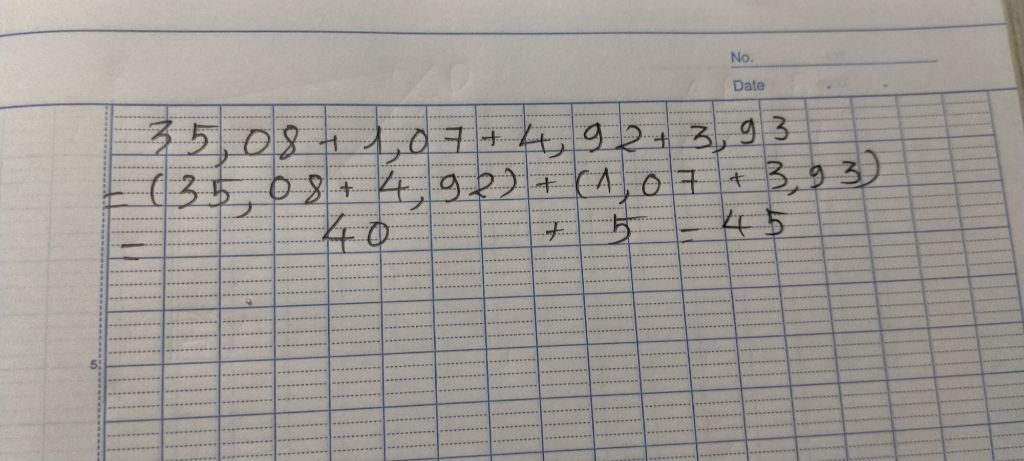 No.
Date
35,08 + 1,07 + 4,92 + 3,93
= (35,08 + 4,92) + (1,07 + 3,93)
= 40 + 5 = 45
5